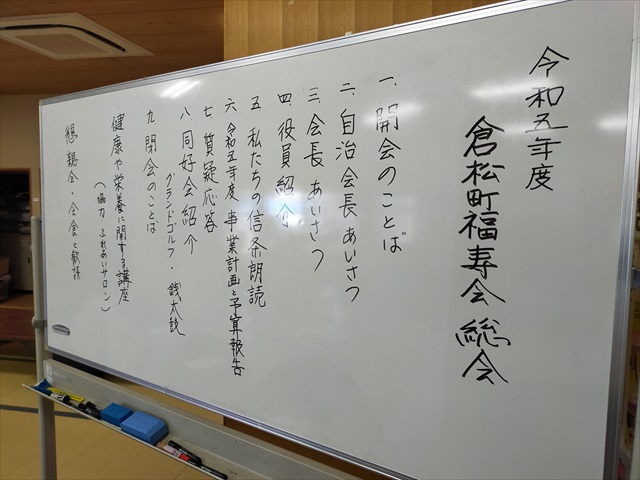 令和五年度
倉松町福寿会 総会
一、開会のことば
二、自治会長 あいさつ
三、会長 あいさつ
四、役員紹介
五、私たちの信条朗読
六、令和五年度 事業計画と予算報告
七、質疑応答
八、同好会紹介
グランドゴルフ・銭太鼓
九、閉会のことば
健康や栄養に関する講座
(協力 ふれあいサロン)
懇親会・会食と歓談